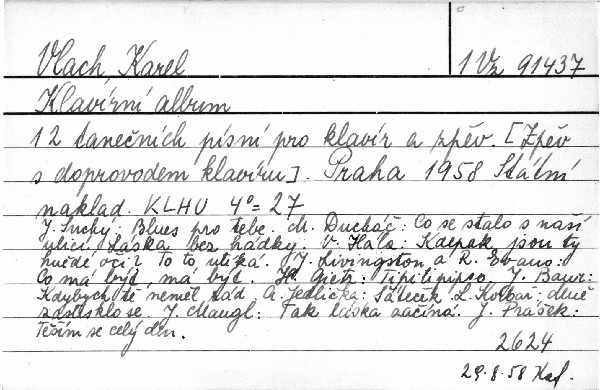 Vlach, Karel
1 Vz 91437
Klavírní album
12 tanečních písní pro klavír a zpěv. [Zpěv
s doprovodem klavíru]. Praha 1958 Státní
naklad. KLHU 4° = 27
J. Suchý: Blues pro tebe. M. Ducháč: Co se stalo s naší
ulicí. Láska bez hádky. V. Hála: Kdepak jsou ty
hnědé oči? To to utíká. J. Livingston a R. Evans:
Co má být, má být. H. Gietz: Tipitipipso. J. Baur:
Kdybych tě neměl rád. A. Jedlička: Šáteček. L. Kolbář: Mně
zastesklo se. J. Maugl: Tak láska začíná. J. Prášek:
Těším se celý den.
2624
29.8.58 Kad.